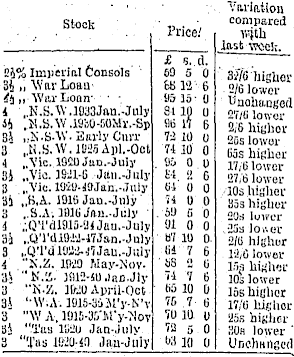 Stock Price. Variation compared with last week.
£ s. d.
2½% Imperial Consols 59 5 0 32/6 higher
3½ ,, War Loan 88 12 6 2/6 lower
4½ ,, War Loan 95 15 0 Unchanged
4 ,, N.S.W. 1933 Jan.-July 84 10 0 27/6 lower
N.S.W. 1930-50 Mr.-Sp 96 17 6 2/6 higher
N.S.W. Early Curr 72 10 0
3 N.S.W. 1935 Apl.-Oct 74 10 0 65s higher
4 ,, Vic. 1920 Jan.-July 95 0 0 17/6 lower
Vic. 1921-6 Jan.-July 84 2 6 27/6 lower
3 Vic. 1929-49 Jan.-July 64 0 0 10s higher
S.A. 1916 Jan.-July 74 0 0 35s higher
3 S.A. 1916 Jan.-July 59 5 0 20s lower
4 Q'l'd 1915-24 Jan.-July 91 0 0
Q'l'd 1922-47 Jan.-July 87 10 0 2/6 higher
Q'l'd 1922-47 Jan.-July 64 7 6 12/6 lower
4 N.Z. 1929 May-Nov. 15s higher
N.Z. 1912-40 Jan.-Jly 74 7 6 10s higher
3 N.Z. 1920 April-Oct 65 10 0 Unchanged
W.A. 1915-35 M'y-N'v 75 7 6 17/6 higher
3 W A. 1915-35 M'y-N'v 70 10 0 25s higher
Tas 1920 Jan-July 72 5 0 30s lower
3 Tas 1920-40 Jan-July 63 10 0 Unchanged